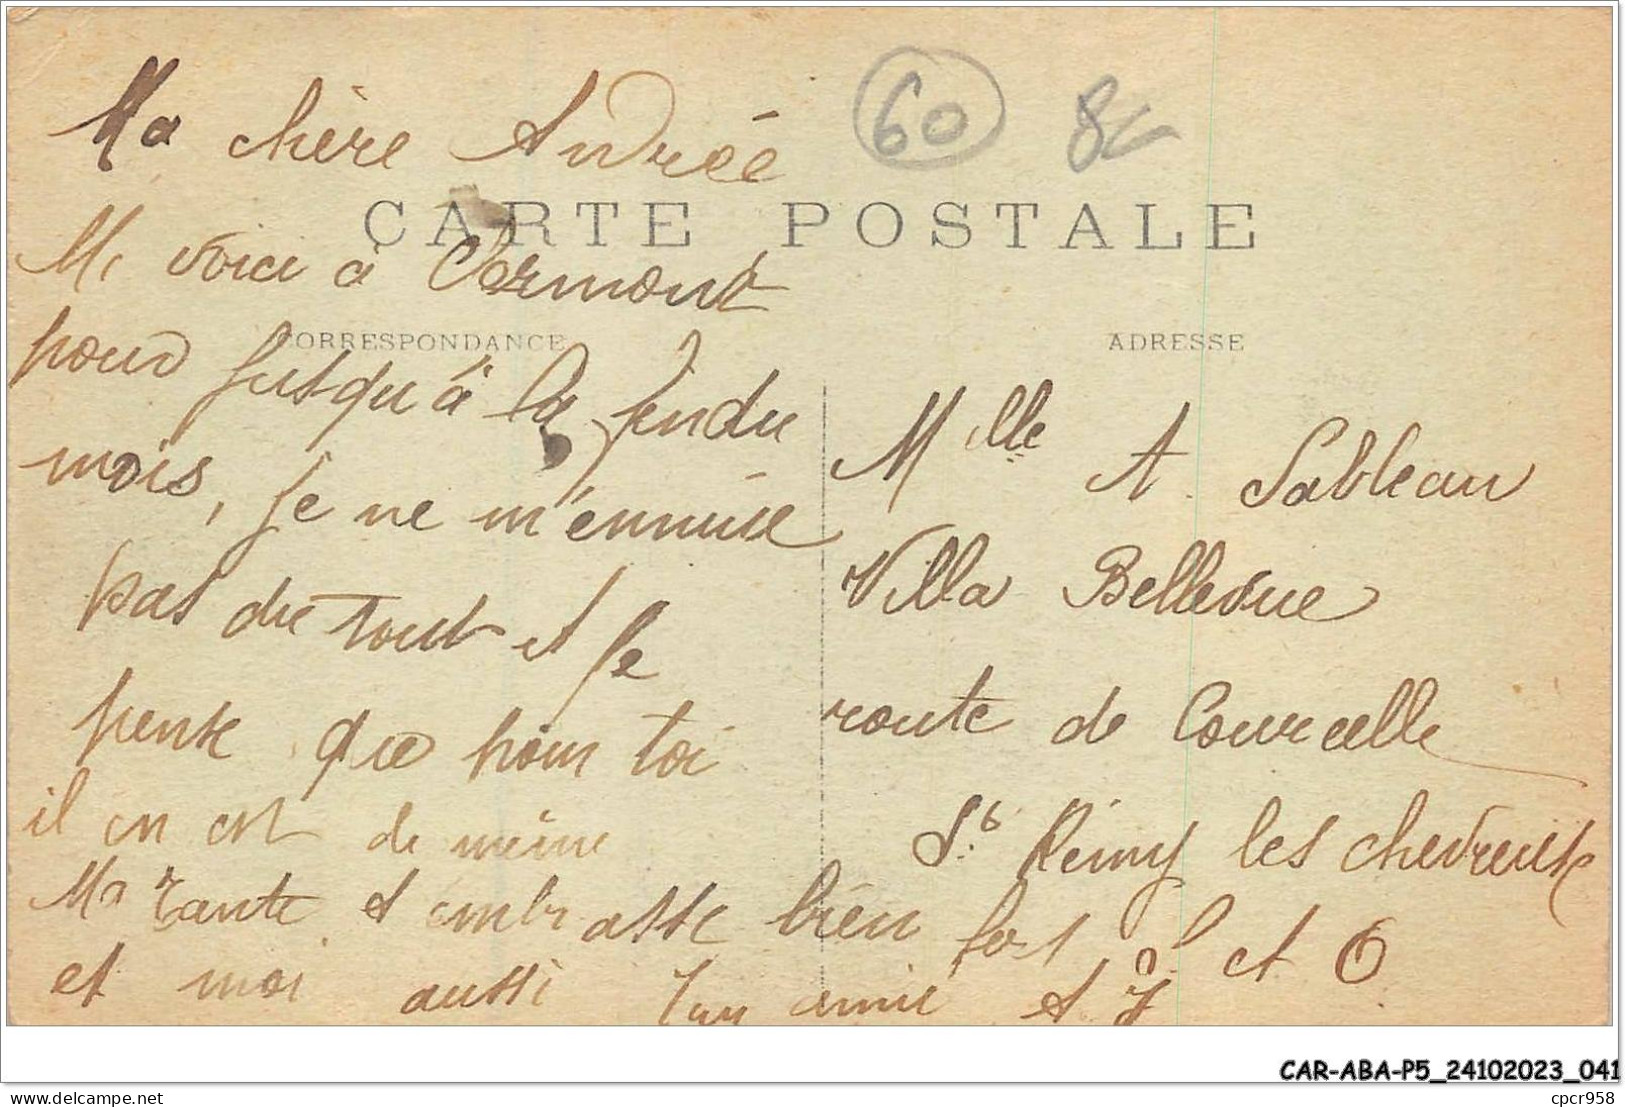 Ma chère Andrée
60
8€
CARTE POSTALE
Me voici à Clermont
CORRESPONDANCE
pour jusqu'à la fin du
mois, je ne m'ennuie
pas du tout et je
pense que pour toi
il en est de même
Ma tante t'embrasse bien fort
et moi aussi Ton amie
ADRESSE
Mlle A. Sableau
Villa Bellevue
route de Courcelle
St. Rémy les chevreuse
S et O
CAR-ABA-P5_24102023_041
cpcr958